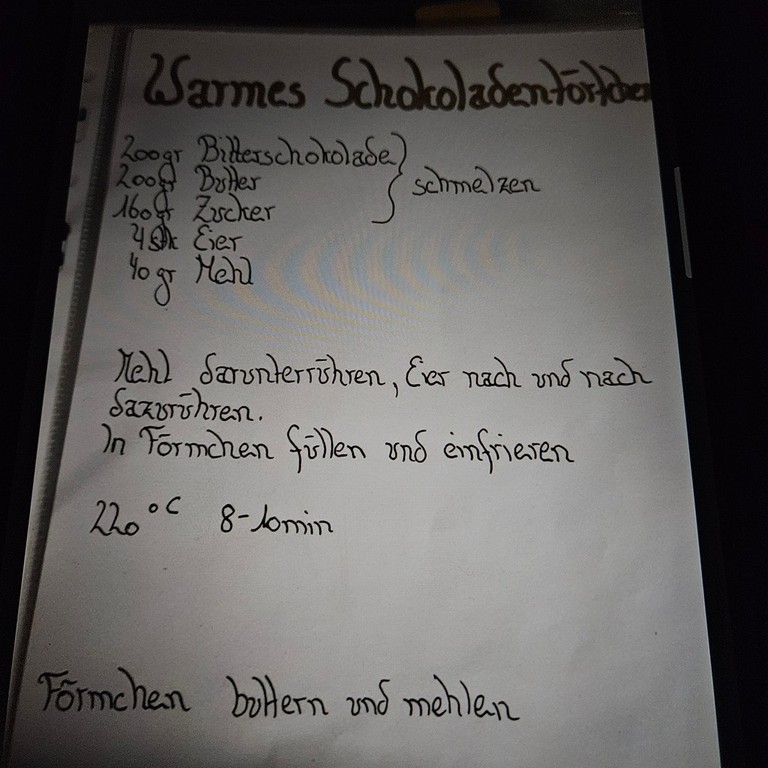 Warmes Schokoladentörtchen
200gr Bitterschokolade
200gr Butter } schmelzen
160gr Zucker
4stk Eier
40gr Mehl
Mehl darunterrühren, Eier nach und nach
dazurühren.
In Förmchen füllen und einfrieren
220°C 8-10min
Förmchen buttern und mehlen